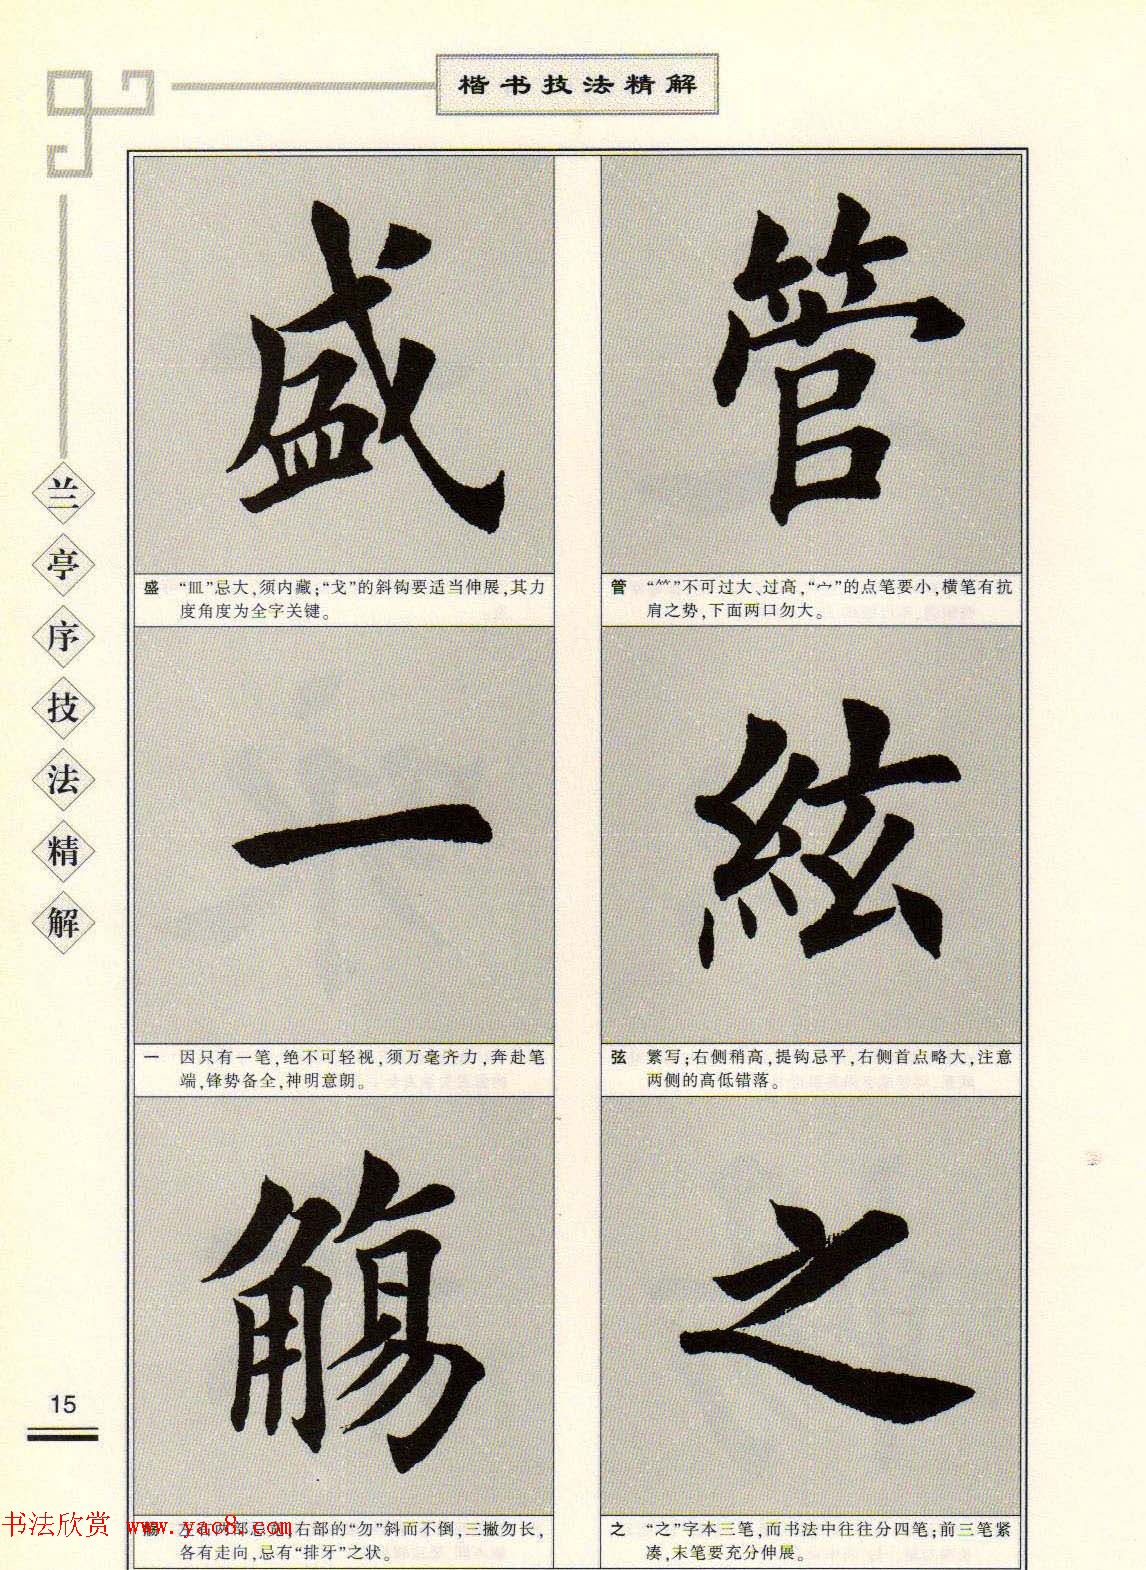 楷书技法精解
兰亭序技法精解
管
管 “⺮”不可过大、过高,“宀”的点笔要小,横笔有抗
肩之势,下面两口勿大。
絃
弦 繁写;右侧稍高,提钩忌平,右侧首点略大,注意
两侧的高低错落。
之
之 “之”字本三笔,而书法中往往分四笔;前三笔紧
凑,末笔要充分伸展。
盛
盛 “皿”忌大,须内藏;“戈”的斜钩要适当伸展,其力
度角度为全字关键。
一
一 因只有一笔,绝不可轻视,须万毫齐力,奔赴笔
端,锋势备全,神明意朗。
觴
觞 右部的“勿”斜而不倒,三撇勿长,
各有走向,忌有“排牙”之状。
15
书法欣赏 www.yac8.com